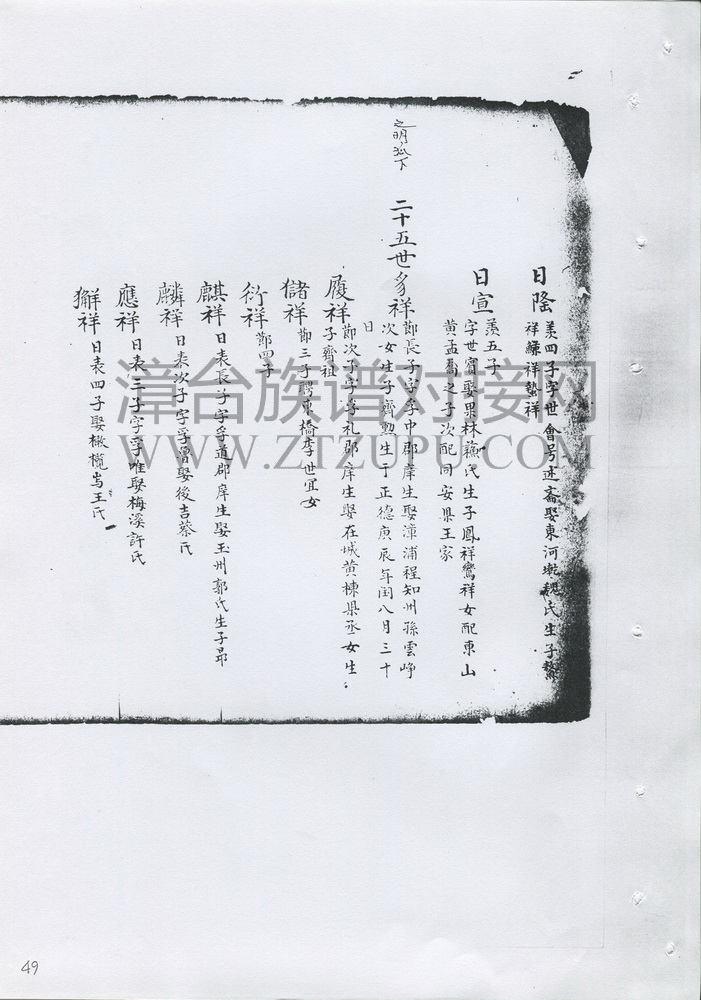 日隆
羡四子字世會号述齋娶東河墘魏氏生子鰲
祥鱇祥蟄祥
日宣
羡五子
字世賓娶果林蘓氏生子鳳祥鸞祥女配東山
黄孟喬之子次配同安県王家
之明派下
二十五世多祥
節長子字子中郡庠生娶漳浦程知州孫雲崢
次女生子齊勲生于正德庚辰年閏八月三十
日
履祥
節次子字子礼郡庠生娶在城黄棟県丞女生
子齊祖
儲祥
節三子聘東橋李世宜女
衍祥
節四子
麒祥
日表長子字孚道郡庠生娶玉州郭氏生子昂
麟祥
日表次子字孚曾娶後吉蔡氏
應祥
日表三子字孚唯娶梅溪許氏
獬祥
日表四子娶橄欖岺王氏
漳台族谱对接网
WWW.ZTZUPU.COM
49